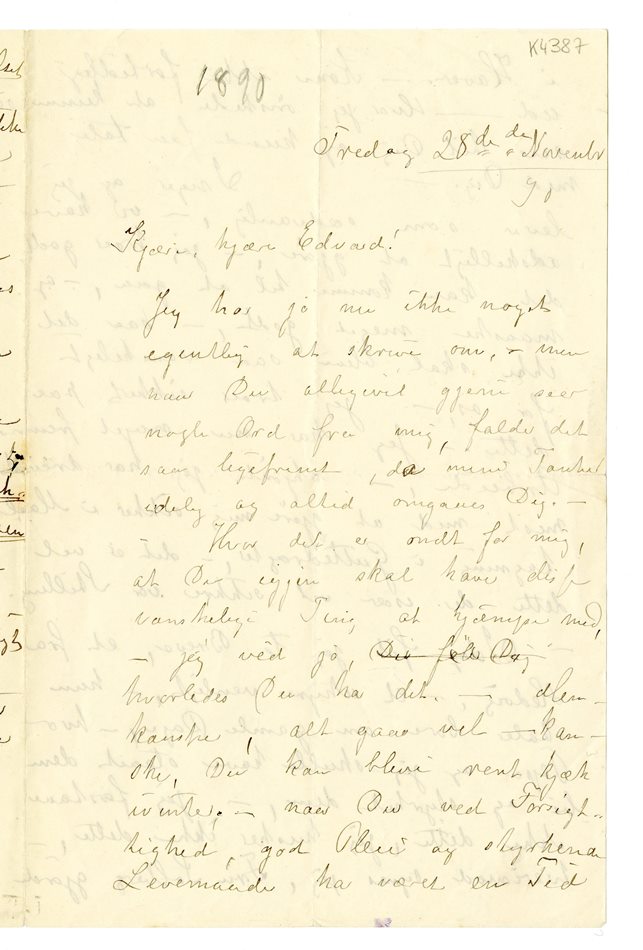 K4387
1890
Fredag 28de Novembr
90
Kjære, kjære Edvard!
Jeg har jo nu ikke noget
egentlig at skrive om, – men
naar Du alligevel gjerne seer
nogle Ord fra mig, falde det
saa ligefremt, da mine Tanker
idelig og altid omgaaes Dig. –
– Hvor det er ondt for mig,
at Du igjen skal have disse
vanskelige Ting at kjæmpe med,
– jeg véd jo, Du føle Dig
hvorledes Du ha det. – Men –
kanske, alt gaae vel – kan –
ske, Du kan blive rent kjæk
ivinter, – naar Du ved Forsigt-
tighed, god Pleie og styrkende
Levemaade ha været en Tid